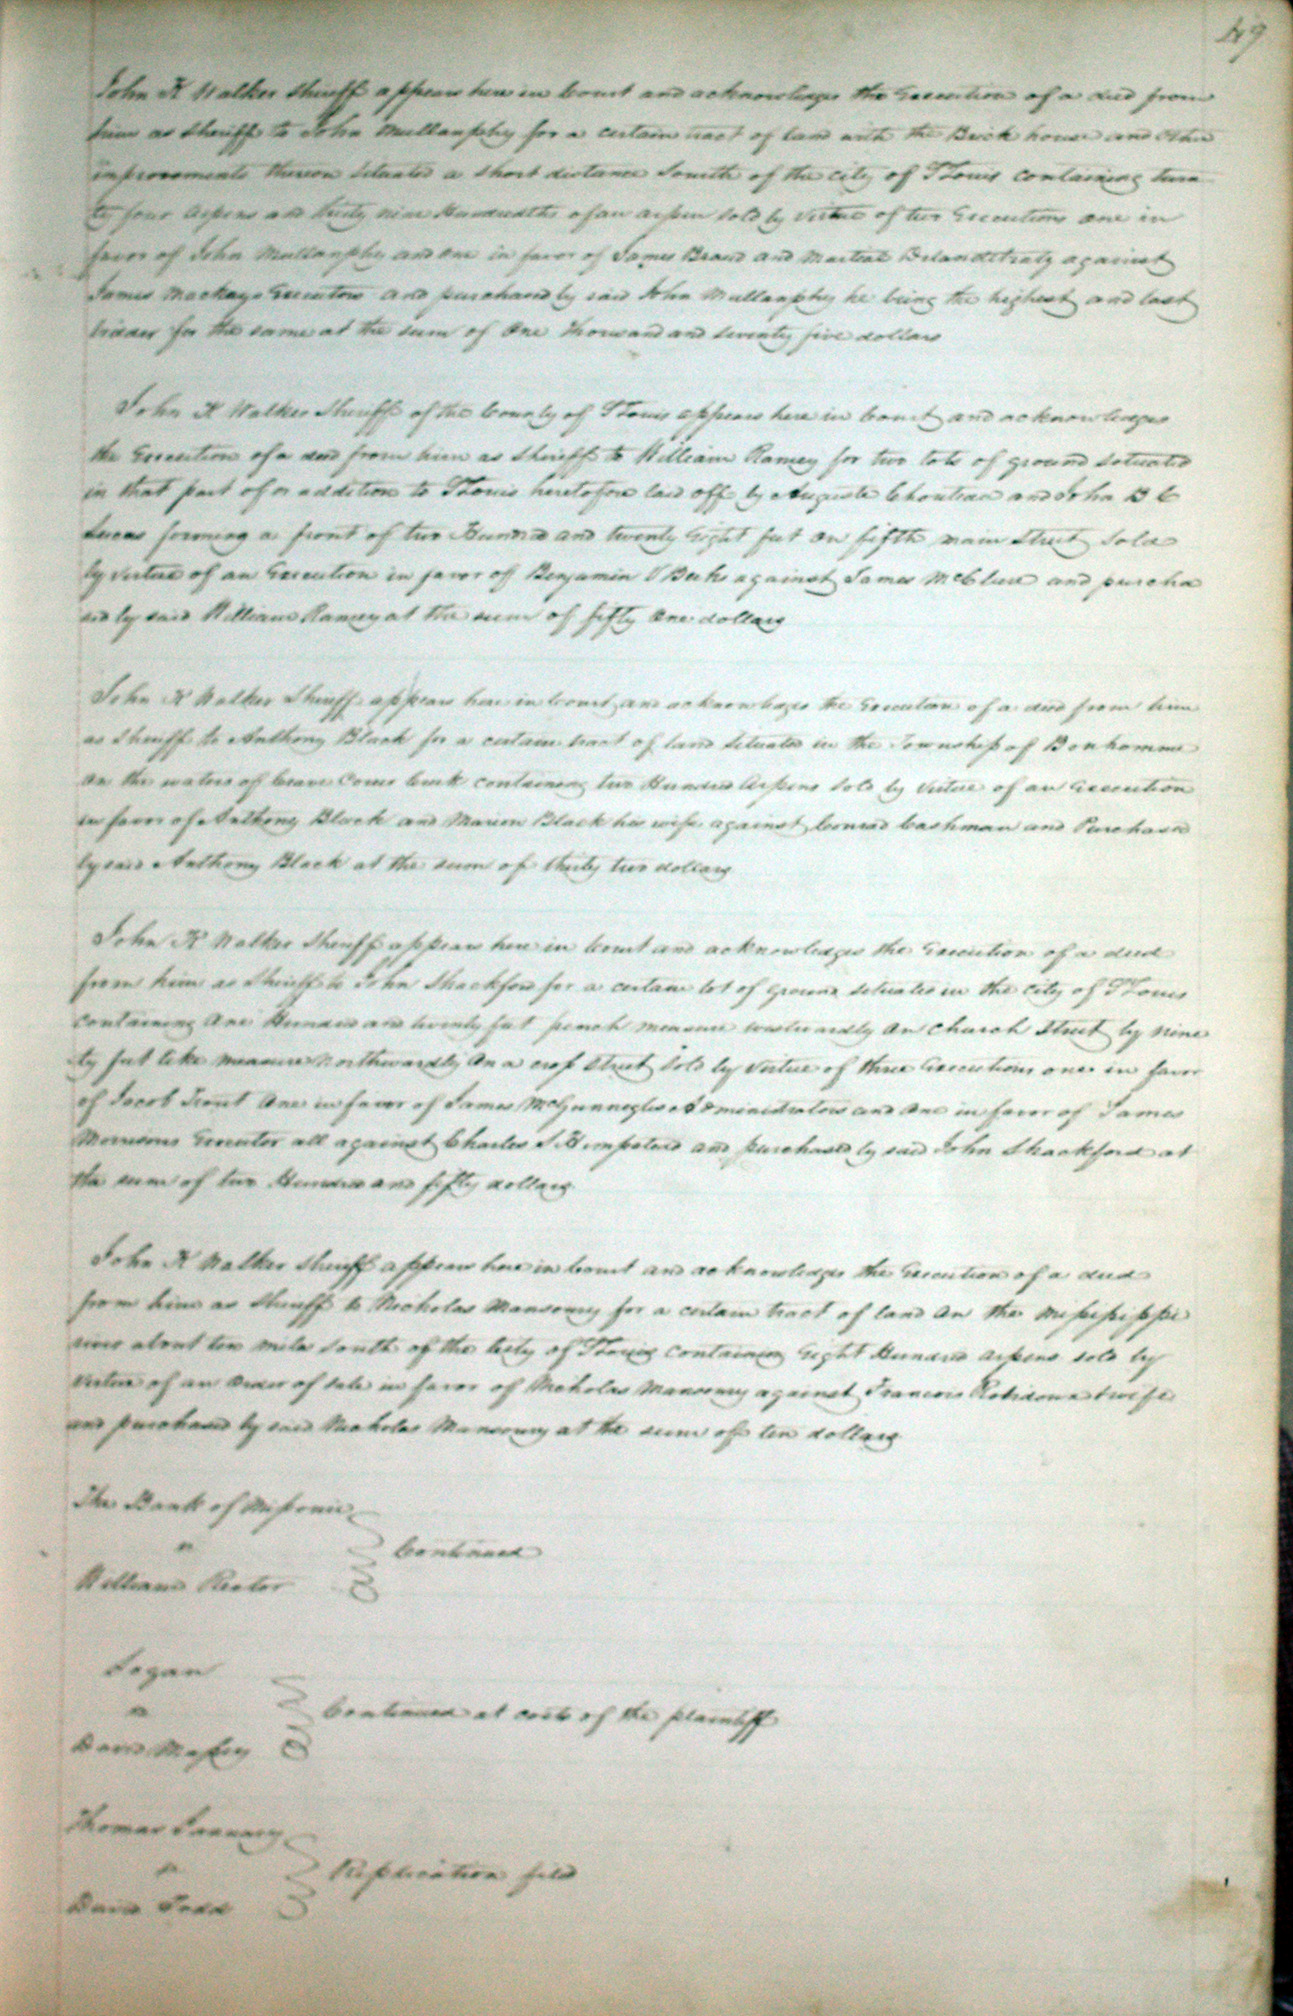 49
John K Walker Sheriff appears here in Court and acknowledges the Execution of a deed from
him as Sheriff to John Mullanphy for a certain tract of land with the Brick house and other
improvements thereon situated a short distance South of the city of St Louis containing twen
ty four Arpens and thirty nine Hundredths of an arpen sold by virtue of two Executions one in
favor of John Mullanphy and one in favor of James Brand and Martial against
James Mackays Executors and purchased by said John Mullanphy he being the highest and last
bidder for the same at the sum of One Thousand and seventy five dollars
John K Walker Sheriff of the County of St Louis appears here in Court and acknowledges
the Execution of a deed from him as Sheriff to William Ramey for two lots of ground situated
in that part of an addition to St Louis heretofore laid off by Auguste Chouteau and John B C
Lucas forming a front of two Hundred and twenty Eight feet on fifth main Street Sold
by virtue of an Execution in favor of Benjamin V Beeks against James McClure and purcha
sed by said William Ramey at the sum of fifty One dollars
John K Walker Sheriff appears here in Court and acknowledges the Execution of a deed from him
as Sheriff to Anthony Black for a certain tract of land situated in the Township of Bonhomme
on the waters of Creve Coeur Creek containing two Hundred Arpens Sold by Virtue of an Execution
in favor of Anthony Black and Marion Black his wife against Conrad Cashman and Purchased
by said Anthony Black at the sum of thirty two dollars
John K Walker Sheriff appears here in Court and acknowledges the Execution of a deed
from him as Sheriff to John Shackford for a certain lot of ground situated in the city of St Louis
containing One Hundred and twenty feet french measure westwardly on Church Street by nine
ty feet like measure Northwardly on a cross Street Sold by virtue of three Executions one in favor
of Jacob One in favor of James McGunnegles Administrators and One in favor of James
Morrisons Executor all against Charles S Hempstead and purchased by said John Shackford at
the sum of two Hundred and fifty dollars
John K Walker Sheriff appears here in Court and acknowledges the Execution of a deed
from him as Sheriff to Nicholas for a certain tract of land on the Mississippi
river about ten miles South of the City of St Louis containing Eight Hundred arpens sold by
virtue of an order of sale in favor of Nicholas against Francois Robidoux & wife
and purchased by said Nicholas at the sum of ten dollars
The Bank of Missouri
vs
Continued
William Rector
Logan
vs
Continued at costs of the plaintiff
David Massey
Thomas January
vs
Replication filed
David Todd